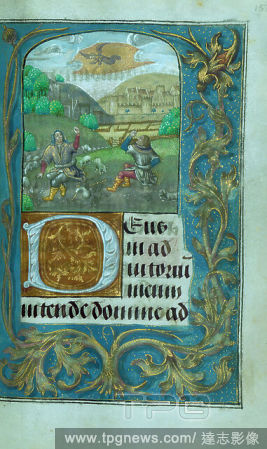 Deus
in ad
iutoriū
meum
intende domine ad
TPG
www.tpgnews.com/ 達志影像